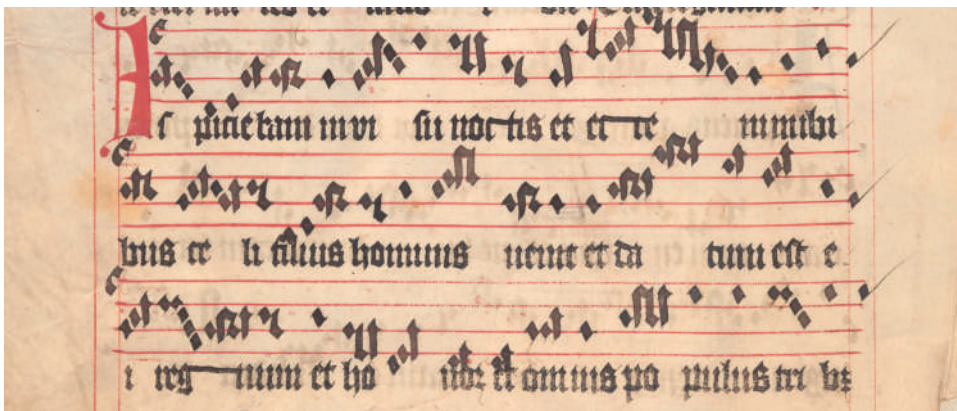 Aspiciebam in vi su noctis et ec ce in nubi
bus ce li filius hominis venit et da tum est e
i reg num et ho nor et omnis po pulus tri bz